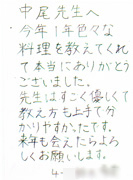 中尾先生へ
今年1年色々な
料理を教えてくれ
て本当にありがとう
ございました。
先生はすごく優しくて
教え方も上手で分
かりやすかったです。
来年も会えたらよろ
しくお願いします。